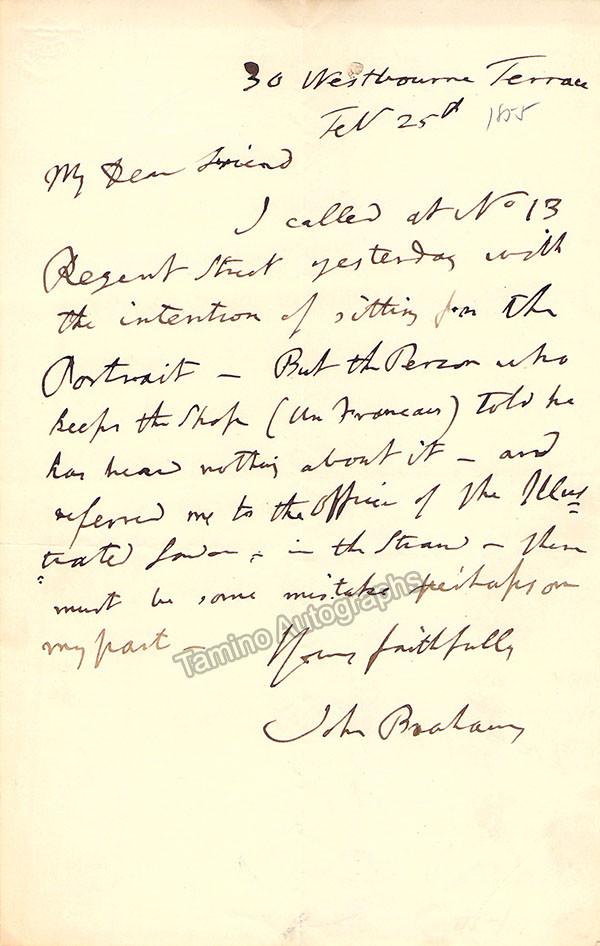 30 Westbourne Terrace
Feb 25th 1855
My Dear Friend
I called at No 13
Regent Street yesterday with
the intention of sitting for the
Portrait – But the Person who
keeps the Shop (Un Francais) told he
has heard nothing about it – and
referred me to the Office of the Illus
trated London in the Strand – There
must be some mistake perhaps on
my part –
Yours faithfully
John Braham
Tamino Autographs